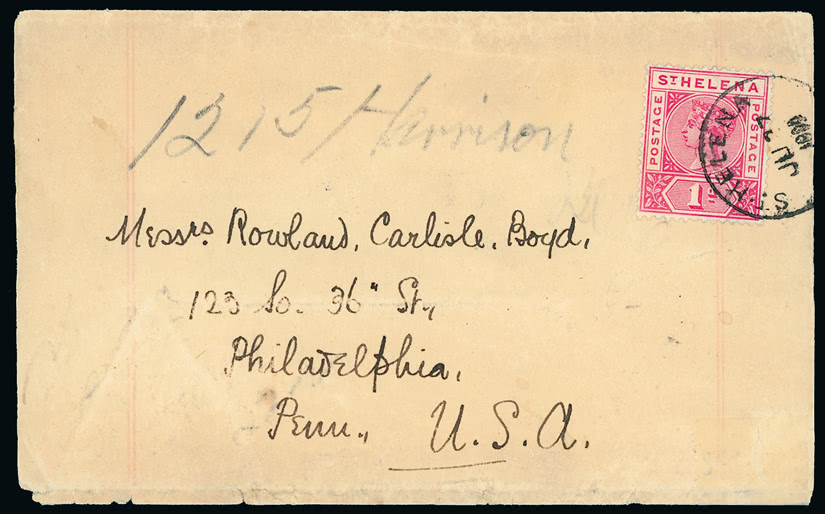 1215 Harrison
ST HELENA
POSTAGE
POSTAGE
1
ST. HELENA
JU 27
1900
Messrs. Rowland, Carlisle, Boyd,
123 So. 36" St.,
Philadelphia,
Penn., U.S.A.